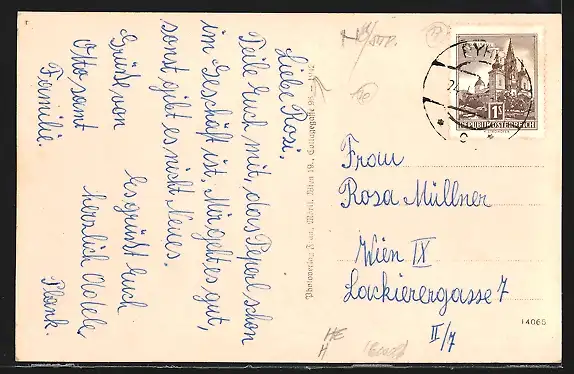 Liebe Rosi.
Teile Euch mit, dass Peperl schon
im Geschäft ist. Mir geht es gut,
sonst gibt es nicht Neues.
Grüße von
Otto samt
Familie.
Es grüßt Euch
herzlich Adele
Plonk.
Wien 18.,
Frau
Rosa Müllner
Wien IX
Lackierergasse 7
II/7
14065
1S
REPUBLIK ÖSTERREICH
HE
H